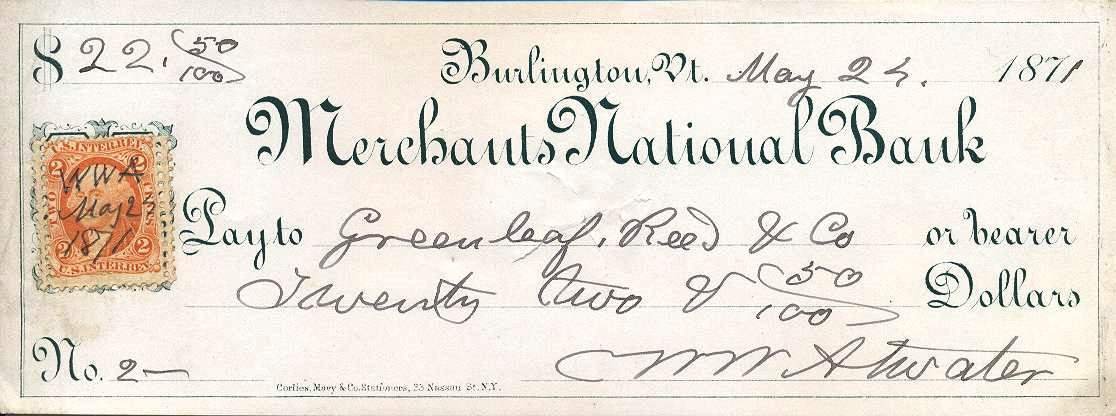 $ 22. 50/100
Burlington, Vt. May 25. 1871
Merchants National Bank
U.S. INTER. REV.
2 2
TWO CENTS
WWA
May 25
1871
2 2
U.S. INTER. REV.
Pay to Greenleaf, Reed & Co or bearer
Twenty two & 50/100 Dollars
No. 2 —
WW Atwater
Corlies, Macy & Co. Stationers, 33 Nassau St. N.Y.